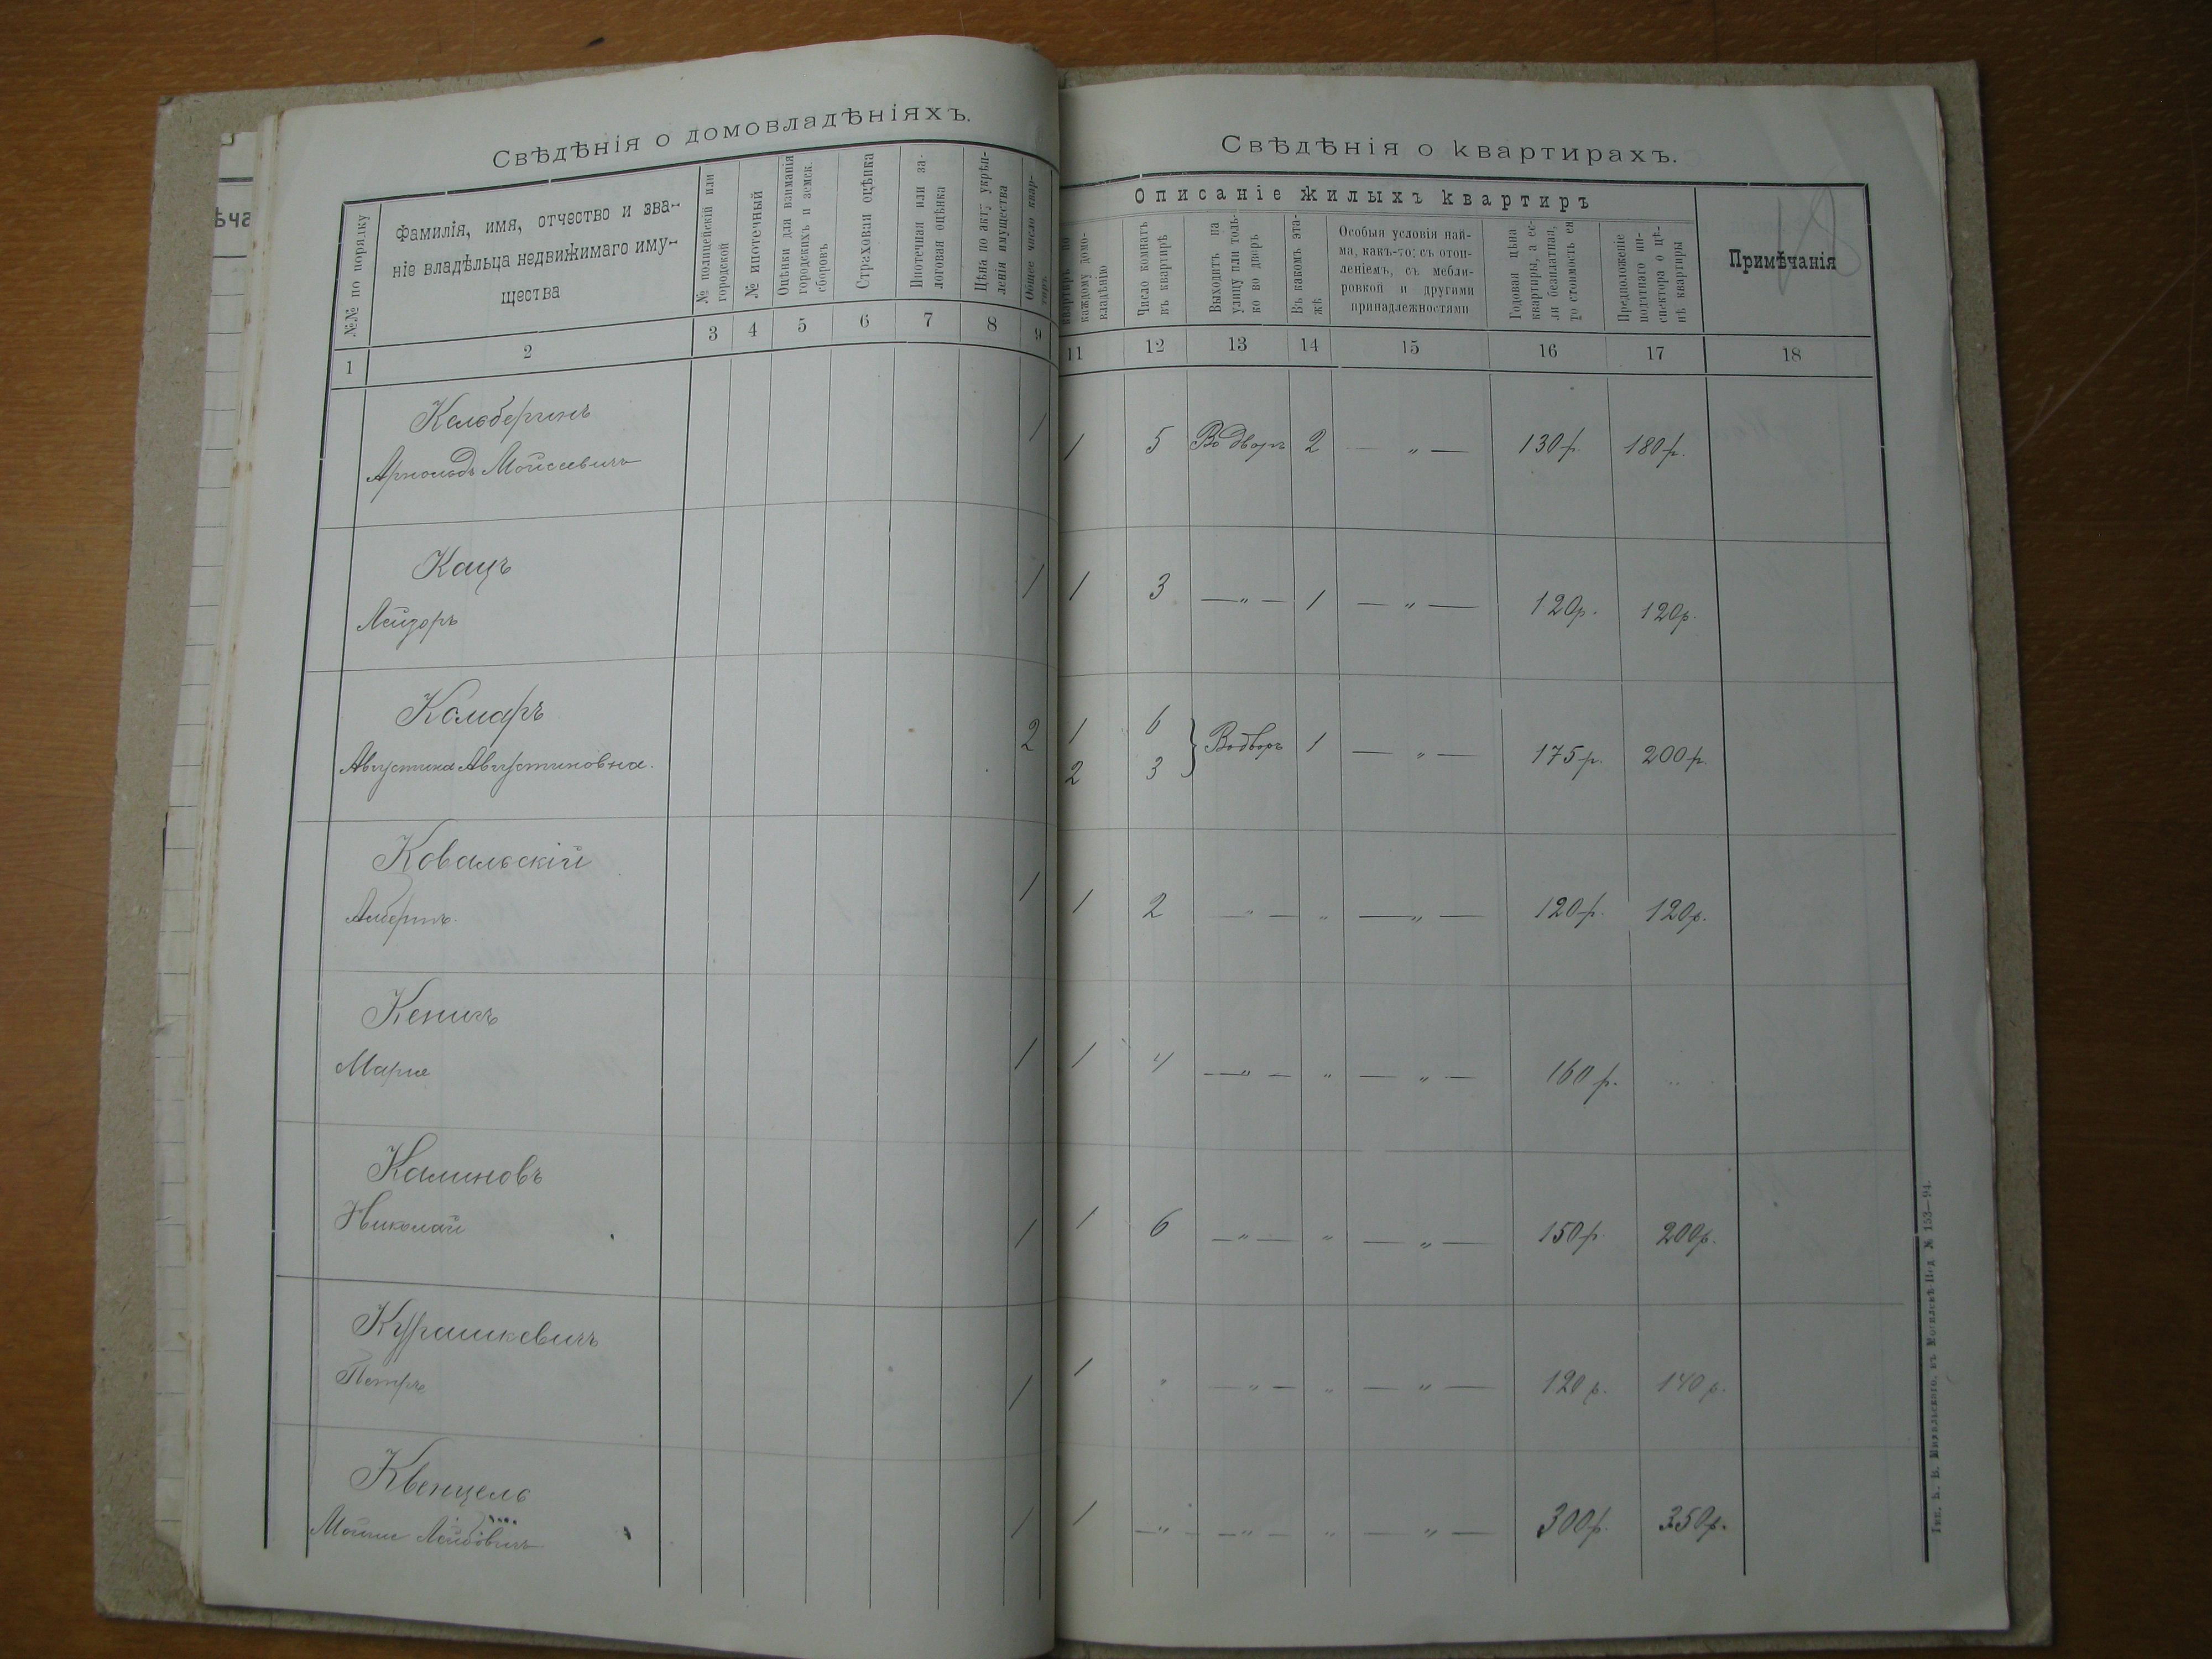 ѣча
Свѣдѣнія о домовладѣніяхъ.
№№ по порядку
Фамилія, имя, отчество и зва-
ніе владѣльца недвижимаго иму-
щества
№ полицейскій или
городской
№ ипотечный
Оцѣнки для взиманія
городскихъ и земск.
сборовъ
Страховая оцѣнка
Ипотечная или за-
логовая оцѣнка
Цѣна по акту укрѣп-
ленія имущества
Общее число квар-
тиръ
1 2 3 4 5 6 7 8 9
Кельберинъ 1
Арнольдъ Мойсеевичъ
Кацъ 1
Лейзоръ
Комаръ 2
Августина Августиновна.
Ковальскій 1
Альбертъ.
Кенигъ 1
Марія
Калиновъ
Николай 1
Курашкевичъ
Петръ 1
Квенцель
Мойше Лейбовичъ 1
Свѣдѣнія о квартирахъ.
Описаніе жилыхъ квартиръ
квартиръ по
каждому домо-
владѣнію
Число комнатъ
въ квартирѣ
Выходитъ на
улицу или толь-
ко во дворъ
Въ какомъ эта-
жѣ
Особыя условія най-
ма, какъ-то: съ отоп-
леніемъ, съ мебли-
ровкой и другими
принадлежностями
Годовая цѣна
квартиры, а ес-
ли безплатная,
то стоимость ея
Предположеніе
податнаго ин-
спектора о цѣ-
нѣ квартиры
Примѣчанія
11 12 13 14 15 16 17 18
1 5 Во дворъ 2 — „ — 130 р. 180 р.
1 3 — „ — 1 — „ — 120 р. 120 р.
1 6 } Во дворъ 1 — „ — 175 р. 200 р.
2 3
1 2 — „ — „ — „ — 120 р. 120 р.
1 4 — „ — „ — „ — 160 р. „
1 6 — „ — „ — „ — 150 р. 200 р.
1 „ — „ — „ — „ — 120 р. 140 р.
1 — „ — — „ — „ — „ — 300 р. 350 р.
№ 153—94.